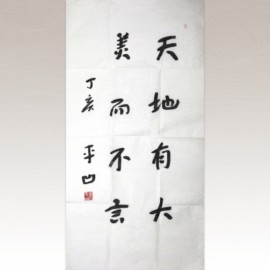 天地有大
美而不言
丁亥
平凹